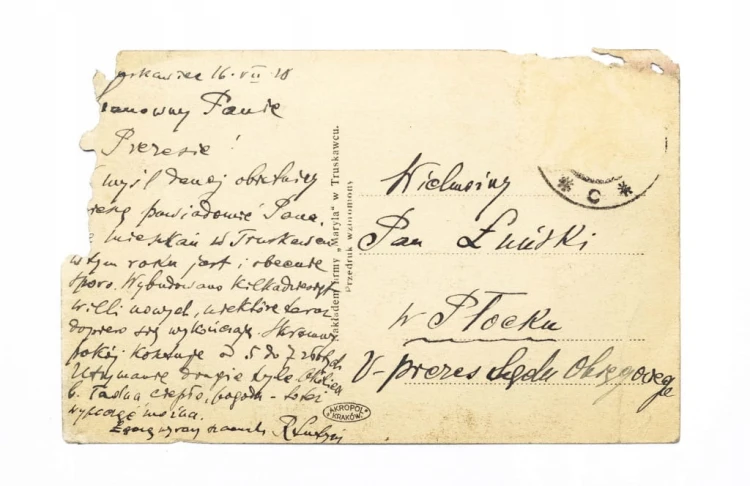 uskawiec 16.VII 28
anowny Panie
Prezesie!
myśl danej obietnicy
powiadomić Pana,
mieszkań w Truskawcu
w tym roku jest i obecnie
sporo. Wybudowano kilkadziesiąt
willi nowych, niektóre teraz
dopiero się wykończają. Skromny
pokój kosztuje od 5 do 7 złotych
Utrzymanie drugie tyle.
b. ładna ciepło, pogoda -
można.
Nakładem firmy „Maryla" w Truskawcu.
Przedruk wzbroniony
AKROPOL
KRAKÓW
C
Wielmożny
Pan
w Płocku
V-prezes Sądu Okręgowego